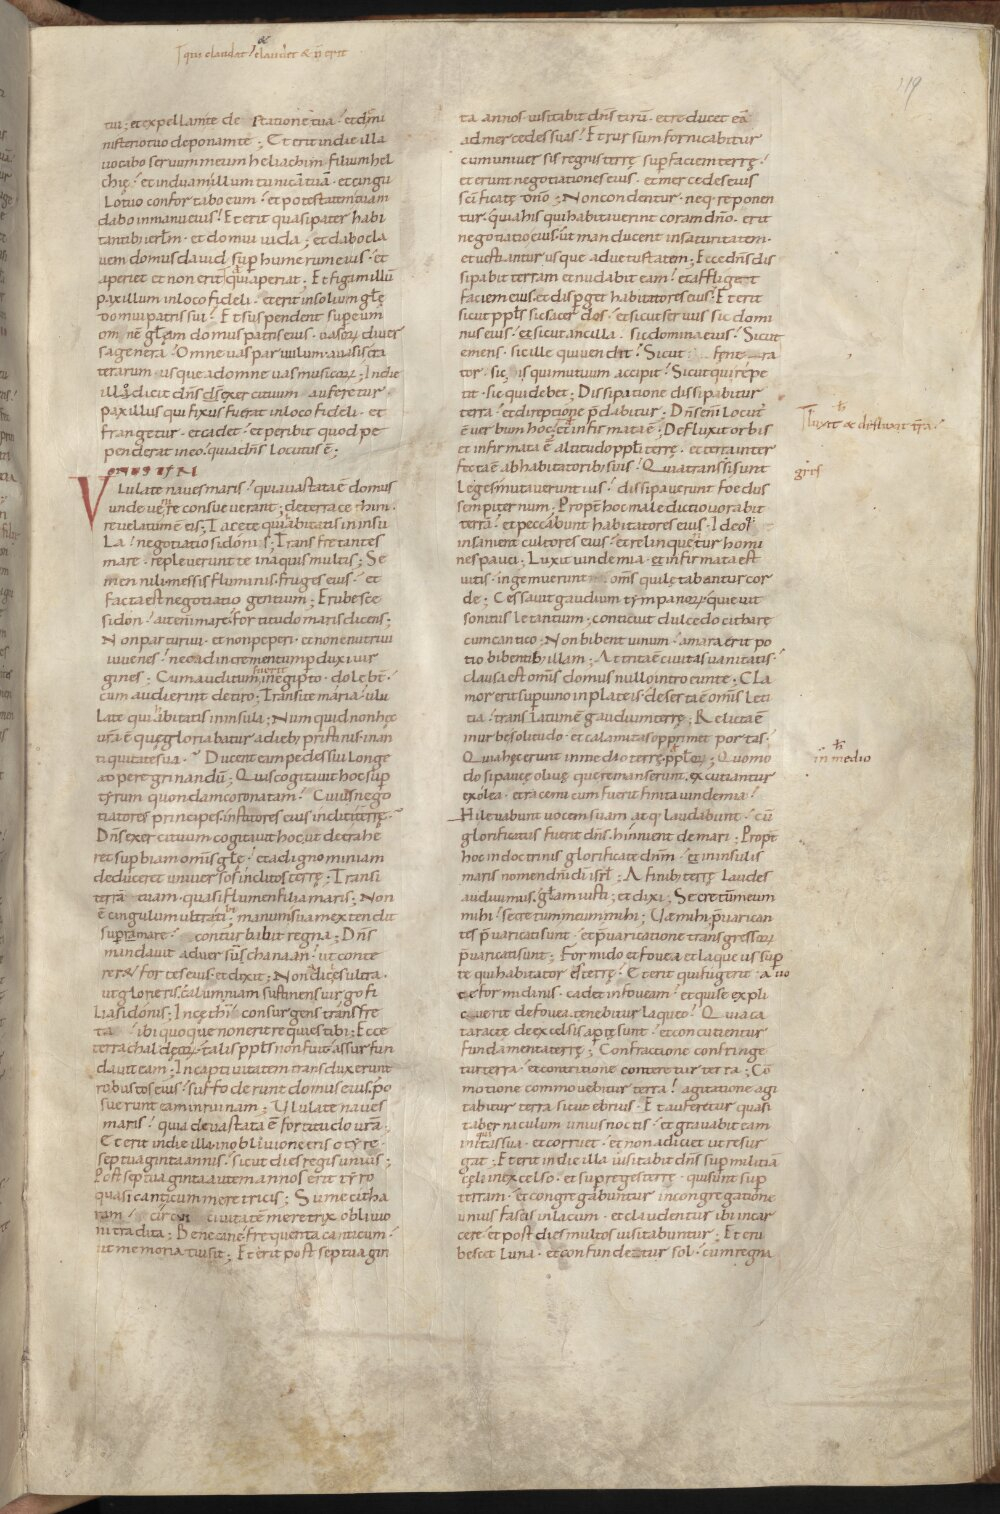 qui claudat / claudet & n̄ erit
119
tui ; et expellam te de statione tua · et de mi
nisterio tuo deponam te ; Et erit in die illa
uocabo seruum meum heliachim filium hel
chię · et induam illum tunicā tuā · et cingu
lo tuo confortabo eum · et potestatem tuam
dabo in manu eius · Et erit quasi pater habi
tantib; ierl̄m · et domui iuda ; et dabo cla
uem domus dauid sup̄ humerum eius · et
aperiet et non erit qui aperiat · Et figam illū
paxillum in loco fideli · et erit in solium glę
domui patris sui · Et suspendent sup eum
omnē glam domus patris eius · uasorum diuer
sa genera · Omne uas paruulum a uasis cra
terarum usque ad omne uas musicorum ; In die
illa dicit dn̄s exercituum auferetur
paxillus qui fixus fuerat in loco fideli · et
frangetur · et cadet · et peribit quod pe
penderat in eo · quia dn̄s locutus ē ;
Vlulate naues maris · quia uastata ē domus
unde uenire consueuerant ; de terra cethim ·
reuelatum ē eis ; Tacete qui habitatis in insu
la · negotiatio sidonis ; Transfretantes
mare · repleuerunt te in aquis multis ; Se
men nili messis fluminis · fruges eius · et
facta est negotiatio gentium ; Erubesce
sidon · ait enim mare fortitudo maris dicens ;
Non parturiui · et non peperi · et non enutriui
iuuenes · nec ad incrementum pduxi uir
gines ; Cum auditum fuerit in egipto · dolebt̄ ·
cum audierint de tiro ; Transite maria · ulu
late qui habitatis in insula ; Num quid non hęc
urā ē quę gloriabatur a dieb; pristinis · in an
tiquitate sua · Ducent eam pedes sui longe
ad peregrinandū ; Quis cogitauit hoc sup̄
tyrum quondam coronatam · Cuius nego
tiatores principes · institores eius incliti terrę ·
Dn̄s exercituum cogitauit hoc · ut detrahe
ret sup̄biam omnis glę · et ad ignominiam
deduceret uniuersos inclitos terrę ; Transi
terrā tuam · quasi flumen filia maris ; Non
ē cingulum ultra tibi ; manum suam extendit
supra mare · conturbabit regna ; Dn̄s
mandauit aduersus chanaan · ut conte
reret fortes eius · et dixit ; Non adicies ultra ·
ut glorieris · calumniam sustinens uirgo fi
lia sidonis ; In cęthi consurgens transfre
ta · ibi quoque non erit requies tibi ; Ecce
terra chaldęorum · talis ppls non fuit · assur fun
dauit eam ; In captiuitatem transduxerunt
robustos eius · suffoderunt domus eius · po
suerunt eam in ruinam ; Vlulate naues
maris · quia deuastata ē fortitudo urā ;
Et erit in die illa · in obliuione eris o tyre ·
septuaginta annis · sicut dies regis unius ;
Post septuaginta autem annos erit tyro
quasi canticum meretricis ; Sume citha
ram · circui ciuitatē meretrix obliuio
ni tradita ; Bene cane · frequenta canticum ·
ut memoria tui sit ; Et erit post septuagin
ta annos uisitabit dn̄s tirū · et reducet eā
ad mercedes suas · Et rursum fornicabitur
cum uniuersis regnis terrę sup̄ faciem terrę ·
et erunt negotiationes eius · et mercedes eius
scīficatę dn̄o ; Non condentur · neq; reponen
tur · quia his qui habitauerint coram dn̄o · erit
negotiatio eius · ut manducent in saturitatem ·
et uestiantur usque ad uetustatem ; Ecce dn̄s dis
sipabit terram et nudabit eam · et affliget
faciem eius · et disperget habitatores eius · Et erit
sicut ppls sic sacerdos · et sicut seruus sic domi
nus eius · et sicut ancilla · sic domina eius · Sicut
emens · sic ille qui uendit · Sicut fenerа
tor · sic is qui mutuum accipit · Sicut qui repe
tit · sic qui debet ; Dissipatione dissipabitur
terra · et direptione p̄dabitur ; Dn̄s enī locut'
ē uerbum hoc · et infirmata ē ; Defluxit orbis
et infirmata ē altitudo ppli terrę · et terra inter
fecta ē ab habitatoribus suis · Quia transgressi sunt
leges mutauerunt ius · dissipauerunt foedus
sempiternum · Propt̄ hoc maledictio uorabit
terrā · et peccabunt habitatores eius · Ideoq;
insanient cultores eius · et relinquetur homi
nes pauci · Luxit uindemia · et infirmata est
uitis · ingemuerunt om̄s qui lętabantur cor
de · Cessauit gaudium tympanorum · quieuit
sonitus letantium ; conticuit dulcedo citharę
cum cantico · Non bibent uinum · amara erit po
tio bibentib; illam ; Attrita ē ciuitas uanitatis ·
clausa est om̄is domus nullo introeunte · Cla
mor erit sup uino in plateis · deserta ē om̄is leti
tia · translatum ē gaudium terrę ; Relicta ē
in urbe solitudo · et calamitas opprimet portas ·
Quia hęc erunt in medio terrę pplorum ; Quomo
do si paucę oliuę quę remanserunt · excutiantur
ex olea · et racemi cum fuerit finita uindemia ·
Hi leuabunt uocem suam atq; laudabunt · cū
glorificatus fuerit dn̄s · hinnient de mari ; Propt̄
hoc in doctrinis glorificate dnm̄ · et in insulis
maris nomen dn̄i dī isrl̄ ; A finib; terrę laudes
audiuimus · glam iusti ; et dixi ; Secretū meum
mihi · secretum meum mihi ; Uę mihi · p̄uarican
tes p̄uaricati sunt · et p̄uaricatione transgressorum
p̄uaricati sunt ; Formido et fouea et laqueus sup̄
te qui habitator es terrę · Et erit qui fugerit · a uo
ce formidinis · cadet in foueam · et qui se expli
cuerit de fouea · tenebitur laqueo · Quia ca
taractę de excelsis aptę sunt · et concutientur
fundamenta terrę ; Confractione confringe
tur terra · et contritione conteretur terra ; Cō
motione commouebitur terra · agitatione agi
tabitur terra sicut ebrius · Et auferetur quasi
tabernaculum unius noctis · et grauabit eam
iniquitas sua · et corruet · et non adiciet ut resur
gat ; Et erit in die illa uisitabit dn̄s sup militiā
cęli in excelso · et sup reges terrę · qui sunt sup̄
terram · et congregabuntur in congregatione
unius fascis in lacum · et claudentur ibi in car
cere · et post dies multos uisitabuntur ; Et eru
bescet luna · et confundetur sol · cum regna
luxit & defluxit tr̄a ·
gres
in medio